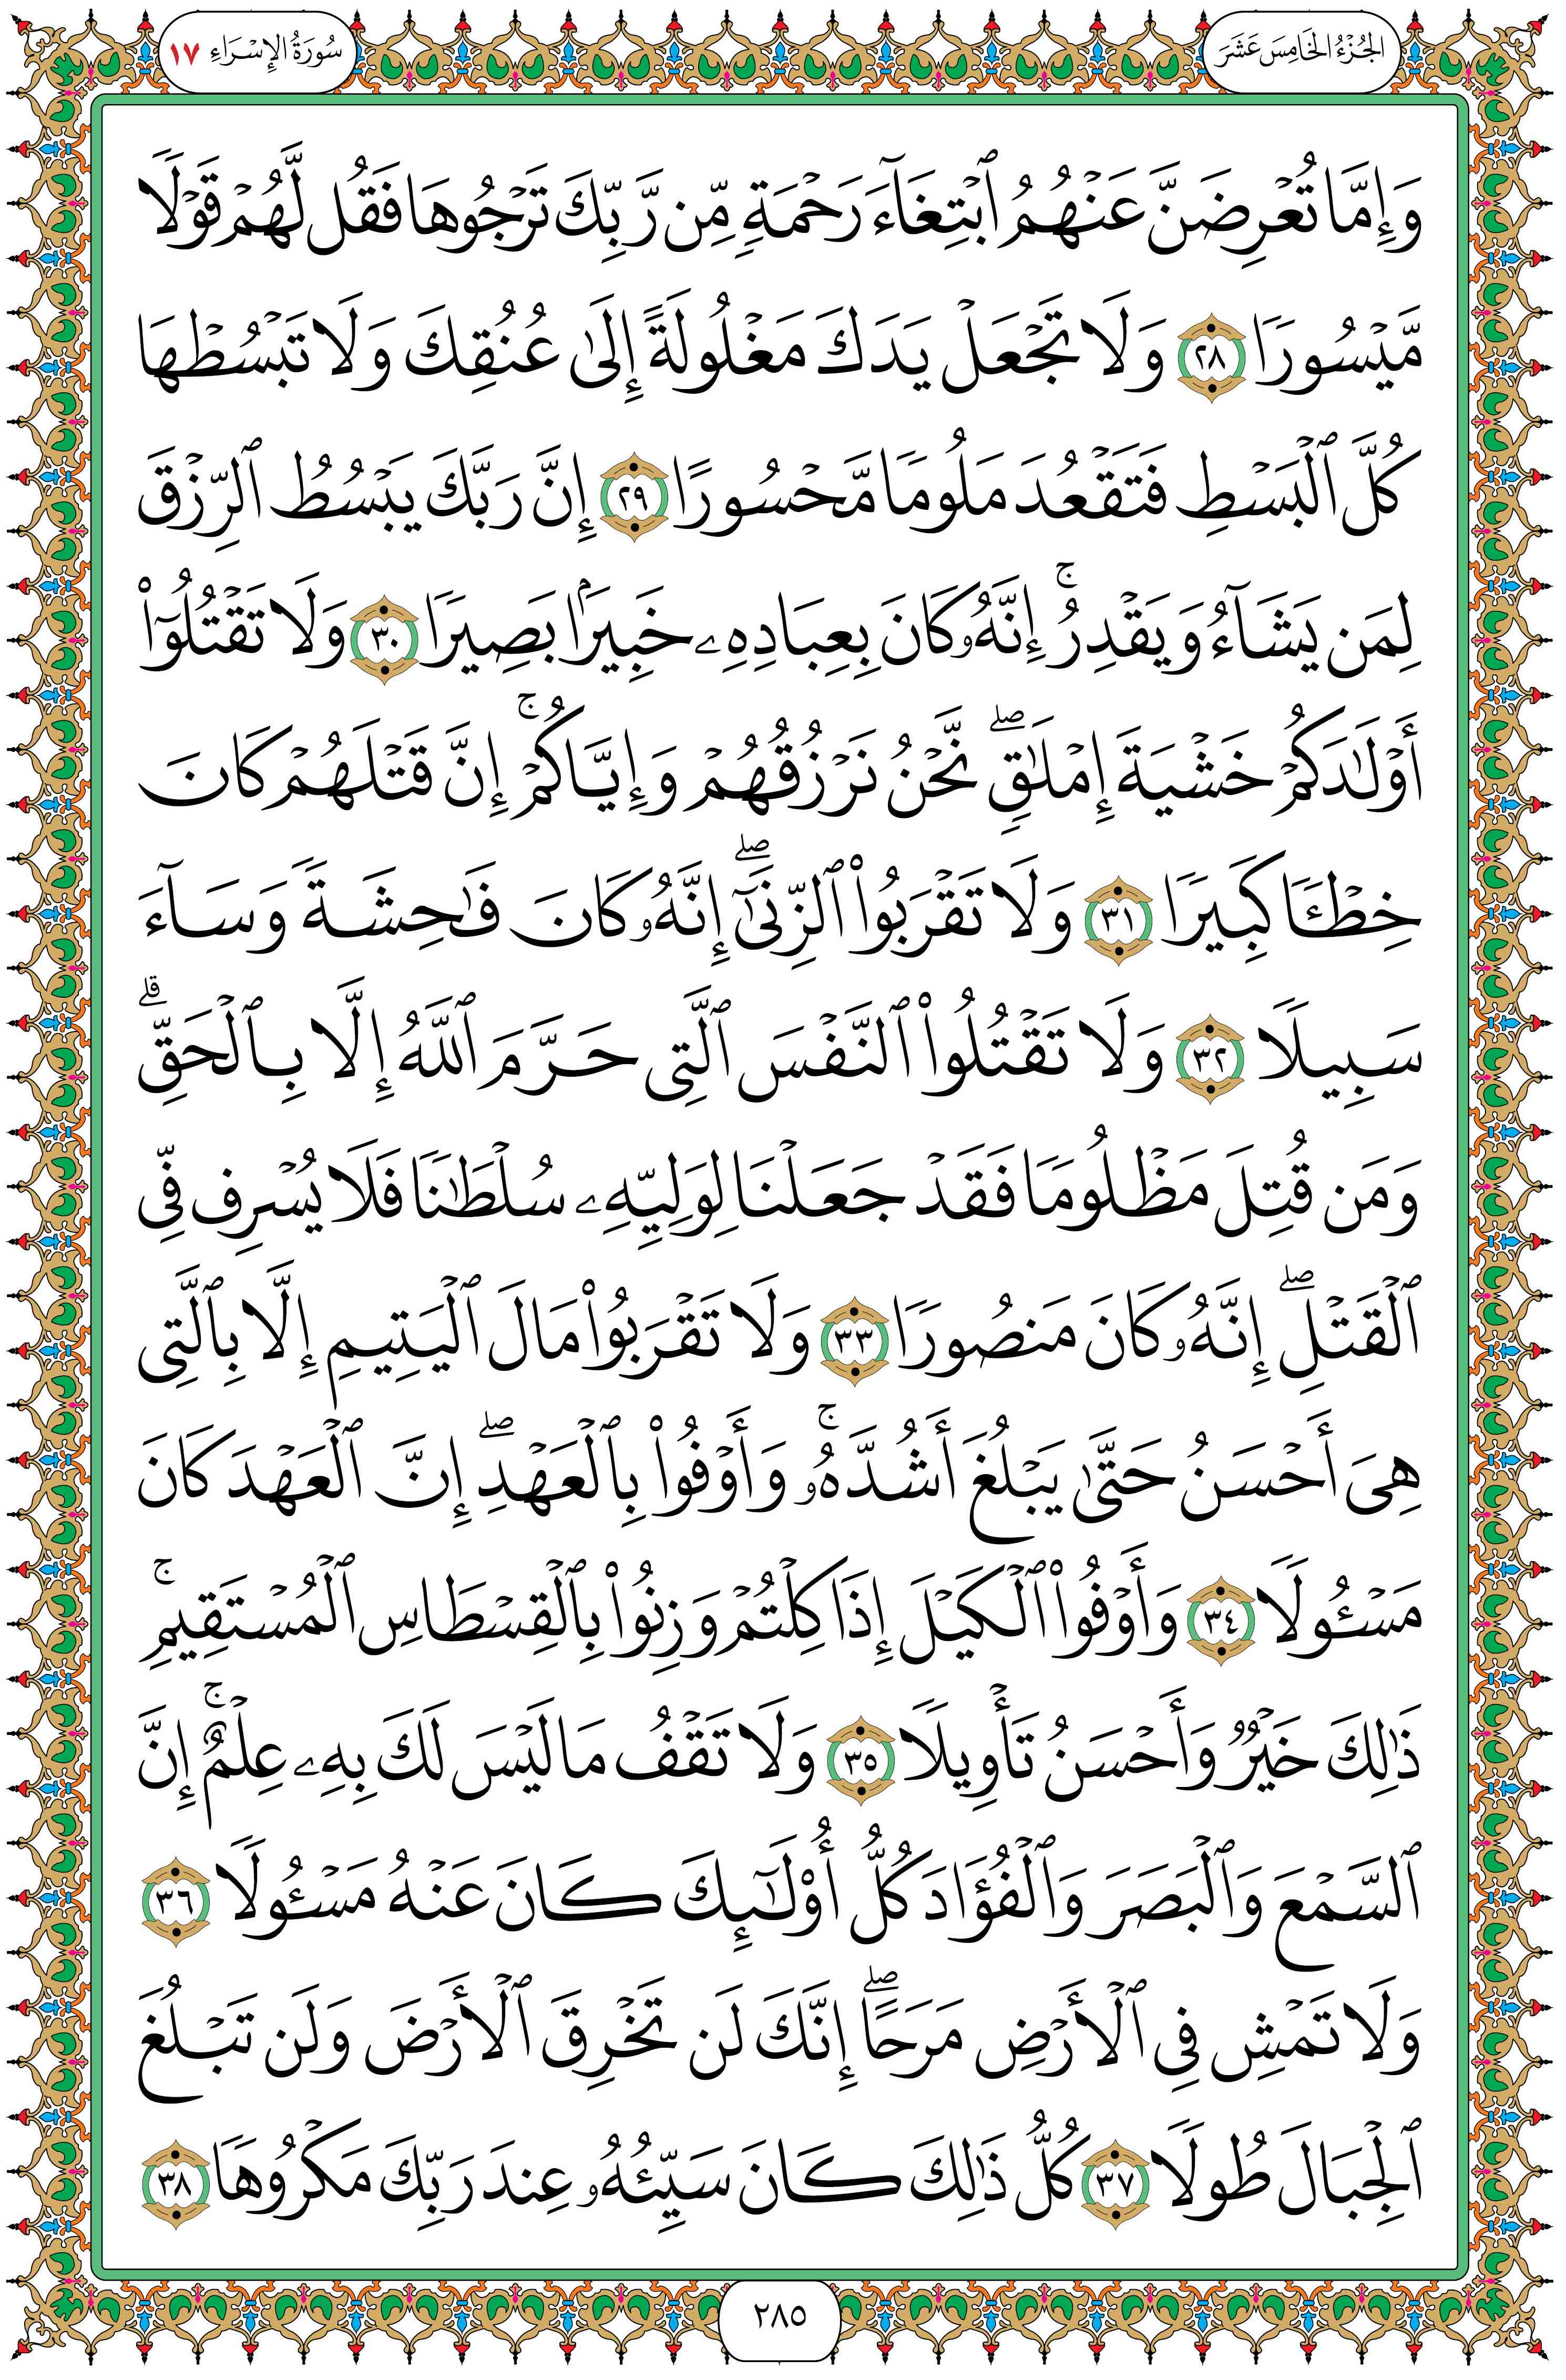 الجُزْءُ الخَامِسَ عَشَرَ
سُورَةُ الإِسْرَاءِ ١٧
وَإِمَّا تُعْرِضَنَّ عَنْهُمُ ٱبْتِغَآءَ رَحْمَةٍ مِّن رَّبِّكَ تَرْجُوهَا فَقُل لَّهُمْ قَوْلًا
مَّيْسُورًا ٢٨ وَلَا تَجْعَلْ يَدَكَ مَغْلُولَةً إِلَىٰ عُنُقِكَ وَلَا تَبْسُطْهَا
كُلَّ ٱلْبَسْطِ فَتَقْعُدَ مَلُومًا مَّحْسُورًا ٢٩ إِنَّ رَبَّكَ يَبْسُطُ ٱلرِّزْقَ
لِمَن يَشَآءُ وَيَقْدِرُ ۚ إِنَّهُۥ كَانَ بِعِبَادِهِۦ خَبِيرًۢا بَصِيرًا ٣٠ وَلَا تَقْتُلُوٓا۟
أَوْلَٰدَكُمْ خَشْيَةَ إِمْلَٰقٍ ۖ نَّحْنُ نَرْزُقُهُمْ وَإِيَّاكُمْ ۚ إِنَّ قَتْلَهُمْ كَانَ
خِطْـًٔا كَبِيرًا ٣١ وَلَا تَقْرَبُوا۟ ٱلزِّنَىٰٓ ۖ إِنَّهُۥ كَانَ فَٰحِشَةً وَسَآءَ
سَبِيلًا ٣٢ وَلَا تَقْتُلُوا۟ ٱلنَّفْسَ ٱلَّتِى حَرَّمَ ٱللَّهُ إِلَّا بِٱلْحَقِّ ۗ
وَمَن قُتِلَ مَظْلُومًا فَقَدْ جَعَلْنَا لِوَلِيِّهِۦ سُلْطَٰنًا فَلَا يُسْرِف فِّى
ٱلْقَتْلِ ۖ إِنَّهُۥ كَانَ مَنصُورًا ٣٣ وَلَا تَقْرَبُوا۟ مَالَ ٱلْيَتِيمِ إِلَّا بِٱلَّتِى
هِىَ أَحْسَنُ حَتَّىٰ يَبْلُغَ أَشُدَّهُۥ ۚ وَأَوْفُوا۟ بِٱلْعَهْدِ ۖ إِنَّ ٱلْعَهْدَ كَانَ
مَسْـُٔولًا ٣٤ وَأَوْفُوا۟ ٱلْكَيْلَ إِذَا كِلْتُمْ وَزِنُوا۟ بِٱلْقِسْطَاسِ ٱلْمُسْتَقِيمِ ۚ
ذَٰلِكَ خَيْرٌ وَأَحْسَنُ تَأْوِيلًا ٣٥ وَلَا تَقْفُ مَا لَيْسَ لَكَ بِهِۦ عِلْمٌ ۚ إِنَّ
ٱلسَّمْعَ وَٱلْبَصَرَ وَٱلْفُؤَادَ كُلُّ أُو۟لَٰٓئِكَ كَانَ عَنْهُ مَسْـُٔولًا ٣٦
وَلَا تَمْشِ فِى ٱلْأَرْضِ مَرَحًا ۖ إِنَّكَ لَن تَخْرِقَ ٱلْأَرْضَ وَلَن تَبْلُغَ
ٱلْجِبَالَ طُولًا ٣٧ كُلُّ ذَٰلِكَ كَانَ سَيِّئُهُۥ عِندَ رَبِّكَ مَكْرُوهًا ٣٨
٢٨٥